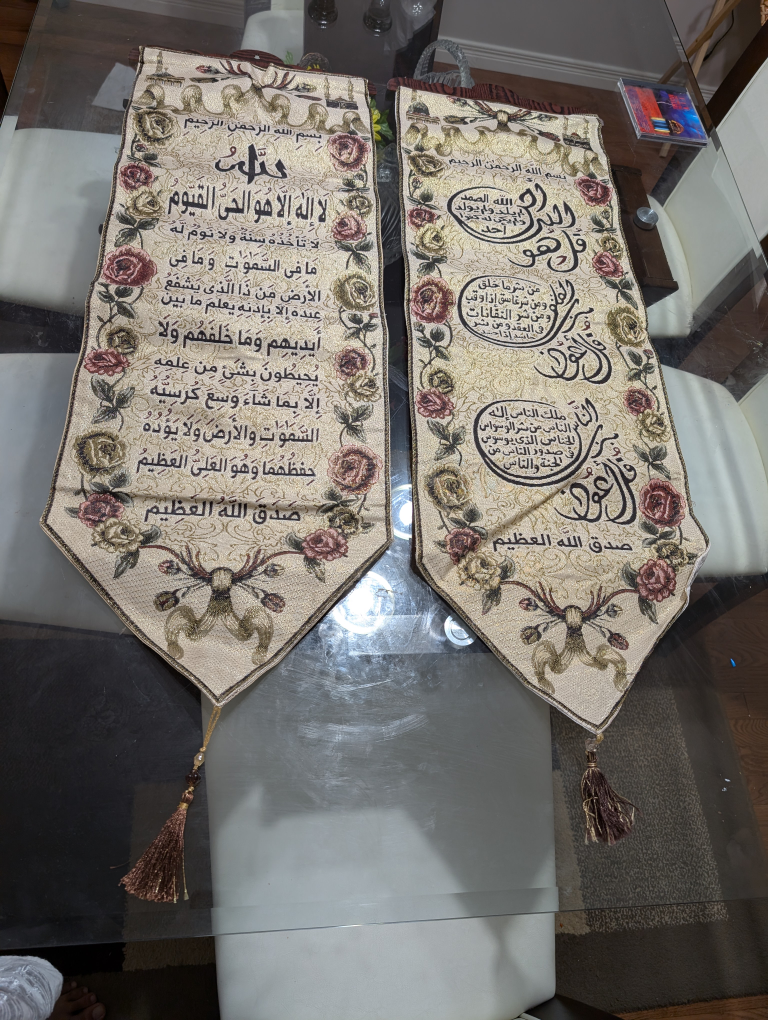 بسم الله الرحمن الرحيم
الله
لا إله إلا هو الحي القيوم
لا تأخذه سنة ولا نوم له
ما في السموات وما في
الأرض من ذا الذي يشفع
عنده إلا بإذنه يعلم ما بين
أيديهم وما خلفهم ولا
يحيطون بشيء من علمه
إلا بما شاء وسع كرسيه
السموات والأرض ولا يؤده
حفظهما وهو العلي العظيم
صدق الله العظيم
بسم الله الرحمن الرحيم
قل هو الله أحد
الله الصمد
لم يلد ولم يولد
أحد
قل أعوذ برب الفلق
من شر ما خلق
ومن شر غاسق إذا وقب
ومن شر النفاثات
في العقد ومن شر
حاسد إذا حسد
قل أعوذ برب الناس
ملك الناس إله
الناس من شر الوسواس
الخناس الذي يوسوس
في صدور الناس من
الجنة والناس
صدق الله العظيم